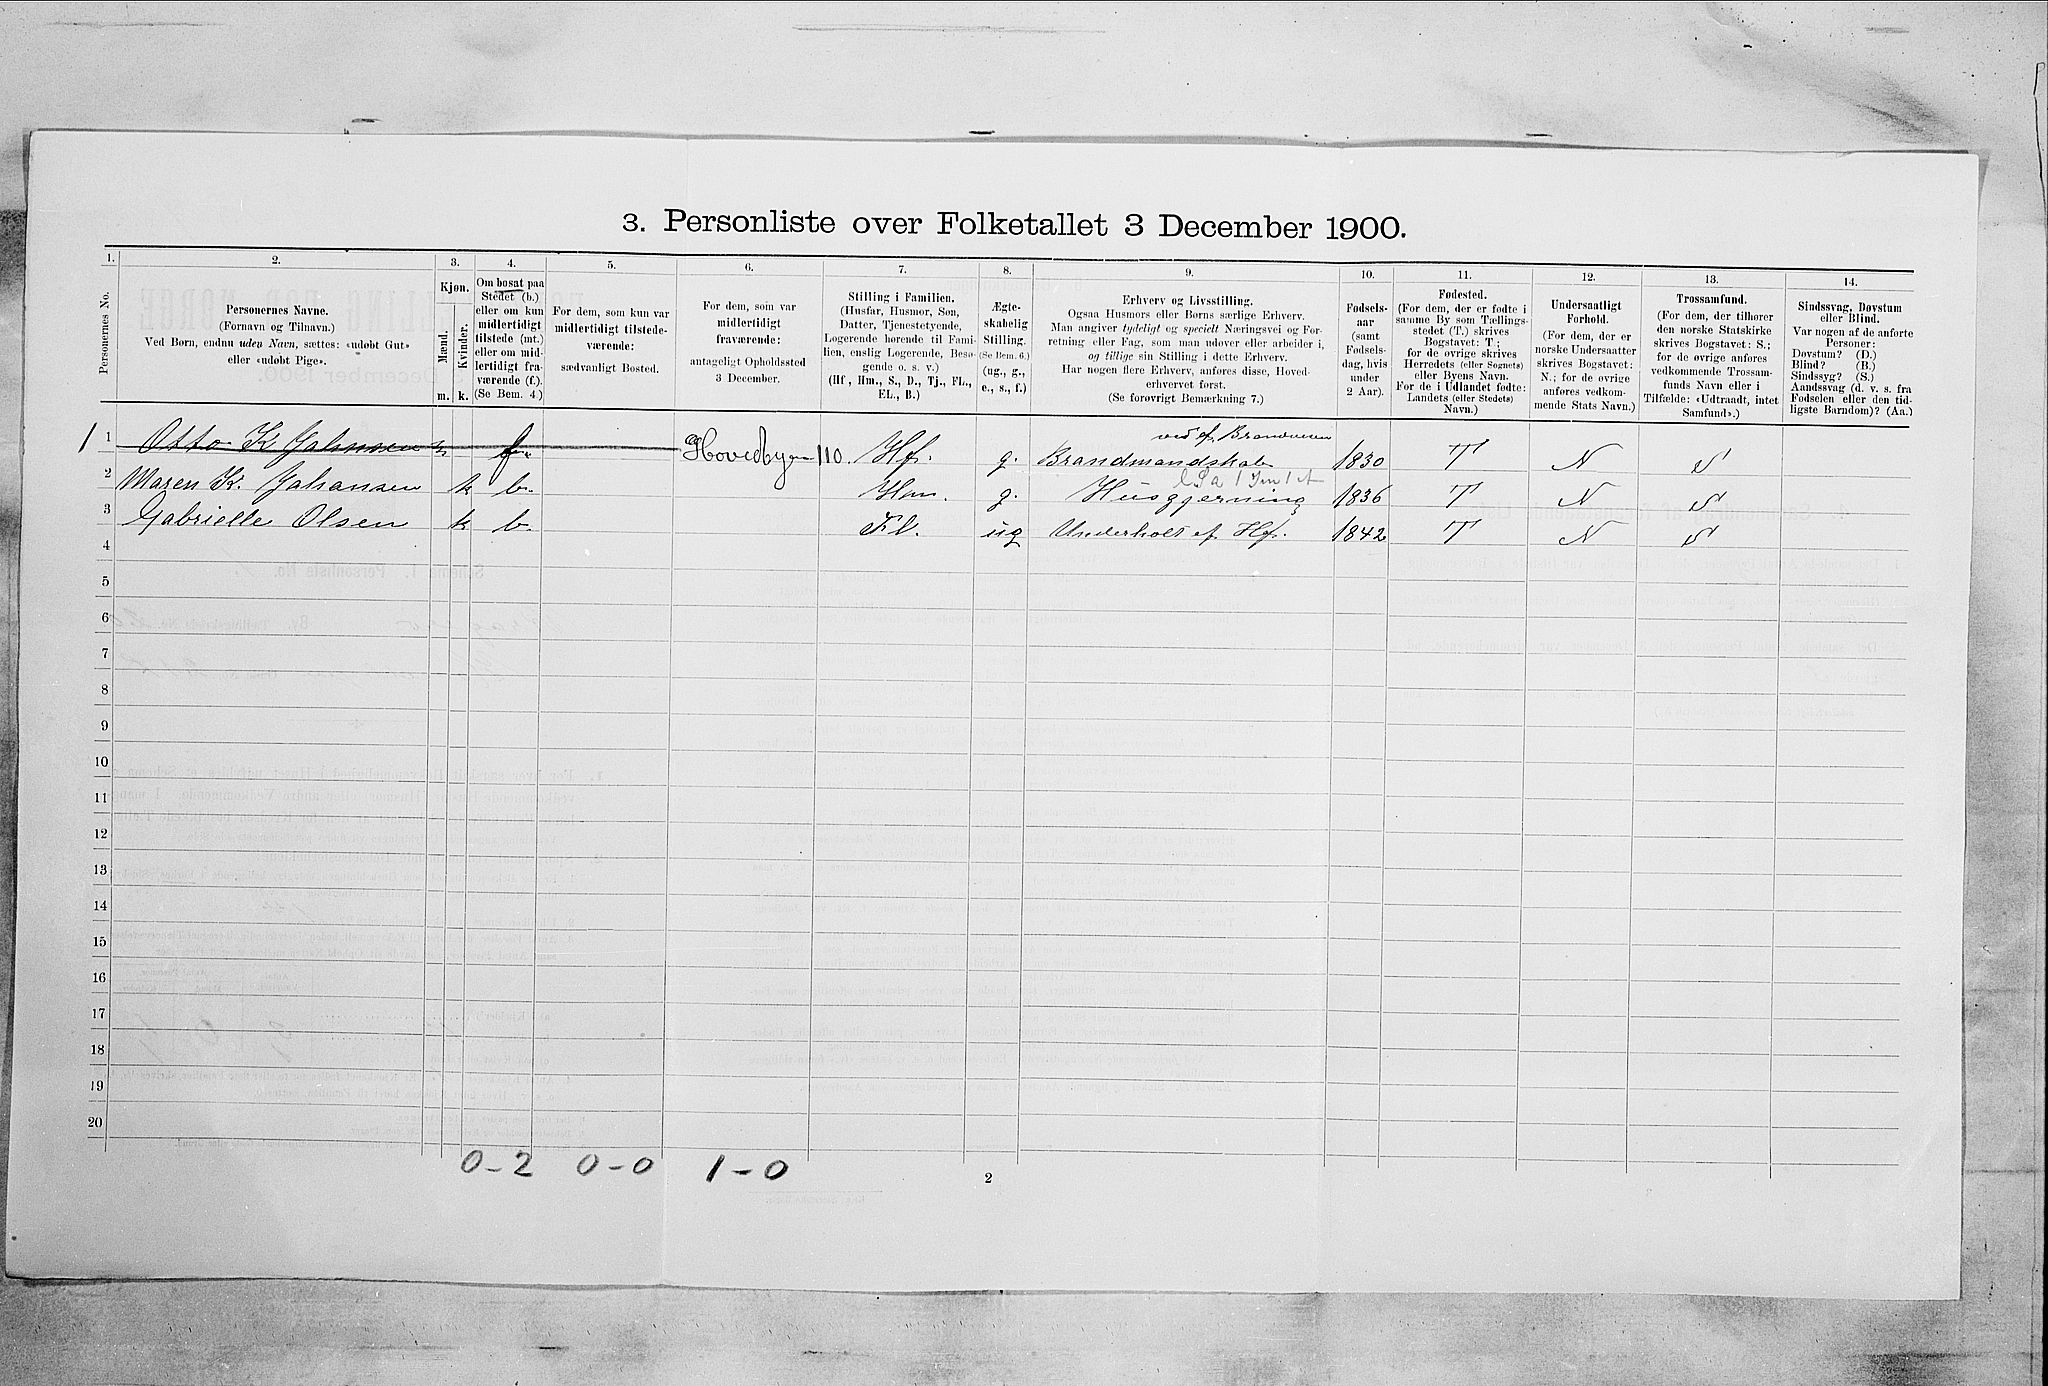 3. Personliste over Folketallet 3 December 1900.
1. 2. 3. 4. 5. 6. 7. 8. 9. 10. 11. 12. 13. 14.
Personernes No.
Personernes Navne.
(Fornavn og Tilnavn.)
Ved Børn, endnu uden Navn, sættes: «udøbt Gut»
eller «udøbt Pige».
Kjøn.
Mænd.
Kvinder.
m. k.
Om bosat paa
Stedet (b.)
eller om kun
midlertidigt
tilstede (mt.)
eller om mid-
lertidigt fra-
værende (f.).
(Se Bem. 4.)
For dem, som kun var
midlertidigt tilstede-
værende:
sædvanligt Bosted.
For dem, som var
midlertidigt
fraværende:
antageligt Opholdssted
3 December.
Stilling i Familien.
(Husfar, Husmor, Søn,
Datter, Tjenestetyende,
Logerende hørende til Fami-
lien, enslig Logerende, Besø-
gende o. s. v.)
(Hf, Hm., S., D., Tj., FL.,
EL., B.)
Ægte-
skabelig
Stilling.
(Se Bem. 6.)
(ug., g.,
e., s., f.)
Erhverv og Livsstilling.
Ogsaa Husmors eller Børns særlige Erhverv.
Man angiver tydeligt og specielt Næringsvei og For-
retning eller Fag, som man udover eller arbeider i,
og tillige sin Stilling i dette Erhverv.
Har nogen flere Erhverv, anføres disse, Hoved-
erhvervet først.
(Se forøvrigt Bemærkning 7.)
Fødsels-
aar
(samt
Fødsels-
dag, hvis
under
2 Aar).
Fødested.
(For dem, der er fødte i
samme By som Tællings-
stedet (T.) skrives
Bogstavet: T.;
for de øvrige skrives
Herredets (eller Sognets)
eller Byens Navn.
For de i Udlandet fødte:
Landets (eller Stedets)
Navn.)
Undersaatligt
Forhold.
(For dem, der er
norske Undersaatter
skrives Bogstavet:
N.; for de øvrige
anføres vedkom-
mende Stats Navn.)
Trossamfund.
(For dem, der tilhører
den norske Statskirke
skrives Bogstavet: S.;
for de øvrige anføres
vedkommende Trossam-
funds Navn eller i
Tilfælde: «Udtraadt, intet
Samfund».)
Sindssvag, Døvstum
eller Blind.
Var nogen af de anførte
Personer:
Døvstum? (D.)
Blind? (B.)
Sindssyg? (S.)
Aandssvag (d. v. s. fra
Fødselen eller den tid-
ligste Barndom)? (Aa.)
ved
1 1 Otto K Johnsen f. Hovedbyen 110. Hf. g. Brandmandskab 1830 T N S
2 Maren K. Johansen k b. Hm. g. Husgjerning 1836 T N S
3 Gabrielle Olsen k b. Fl. ug Underholdt af Hf. 1842 T N S
4
5
6
7
8
9
10
11
12
13
14
15
16
17
18
19
20
0-2 0-0 1-0
2